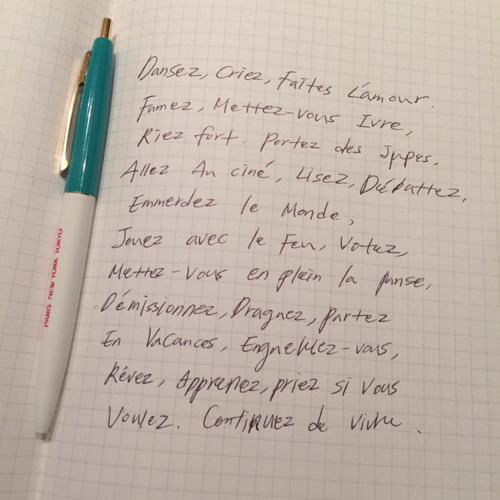 Dansez, Criez, Faîtes L'amour.
Fumez, Mettez-vous Ivre,
Riez fort. Portez des Jupes.
Allez Au ciné, Lisez, Débattez,
Emmerdez le Monde,
Jouez avec le Feu, Votez,
Mettez-Vous en plein la panse,
Démissionnez, Draguez, partez
En Vacances, Engueulez-vous,
Rêvez, Apprenez, priez si vous
Voulez. Continuez de vivre.
PARIS NEW YORK TOKYO